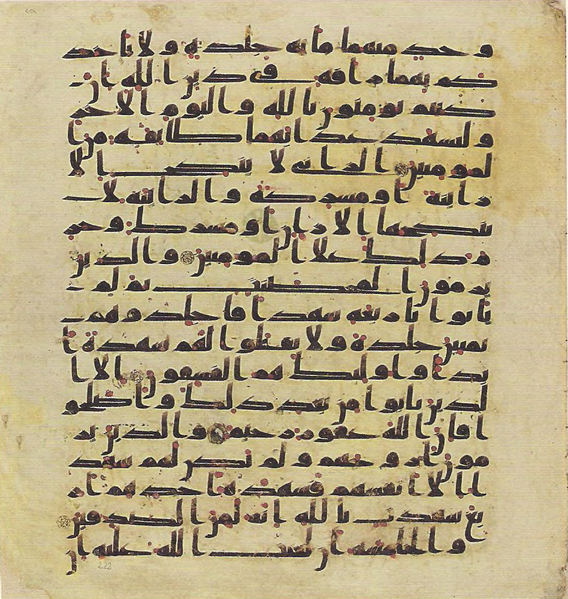 وحد منهما مائة جلدة ولا تاخذ
كم بهما رافة في دين الله ان
كنتم تومنون بالله واليوم الاخر
وليشهد عذابهما طائفة من ا
لمومنين الزاني لا ينكح الا
زانية او مشركة والزانية لا
ينكحها الا زان او مشرك وحر
م ذلك على المومنين والذين
يرمون المحصنت ثم لم
ياتوا باربعة شهدا فاجلدوهم
ثمنين جلدة ولا تقبلوا لهم شهدة ا
بدا واولئك هم الفسقون الا ا
لذين تابوا من بعد ذلك واصلحو
ا فان الله غفور رحيم والذين ير
مون ازوجهم ولم يكن لهم شهد
ا الا انفسهم فشهدة احدهم ار
بع شهدت بالله انه لمن الصدقين
والخمسة ان لعنت الله عليه ان